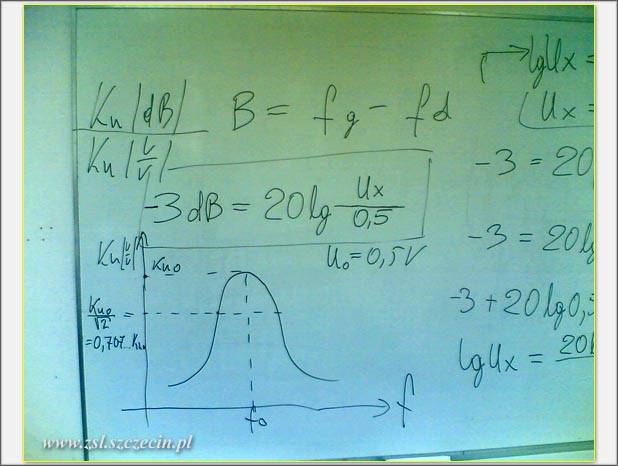 Ku [dB]
B = fg - fd
Ku [V/V]
-3dB = 20lg Ux/0,5
Uo = 0,5V
Ku [V/V]
Kuo
Kuo/√2 =
=0,707..Kuo
fo
f
lgUx =
Ux =
-3 = 20
-3 = 20lg
-3 + 20lg0,5
lgUx = 20
www.zsl.szczecin.pl